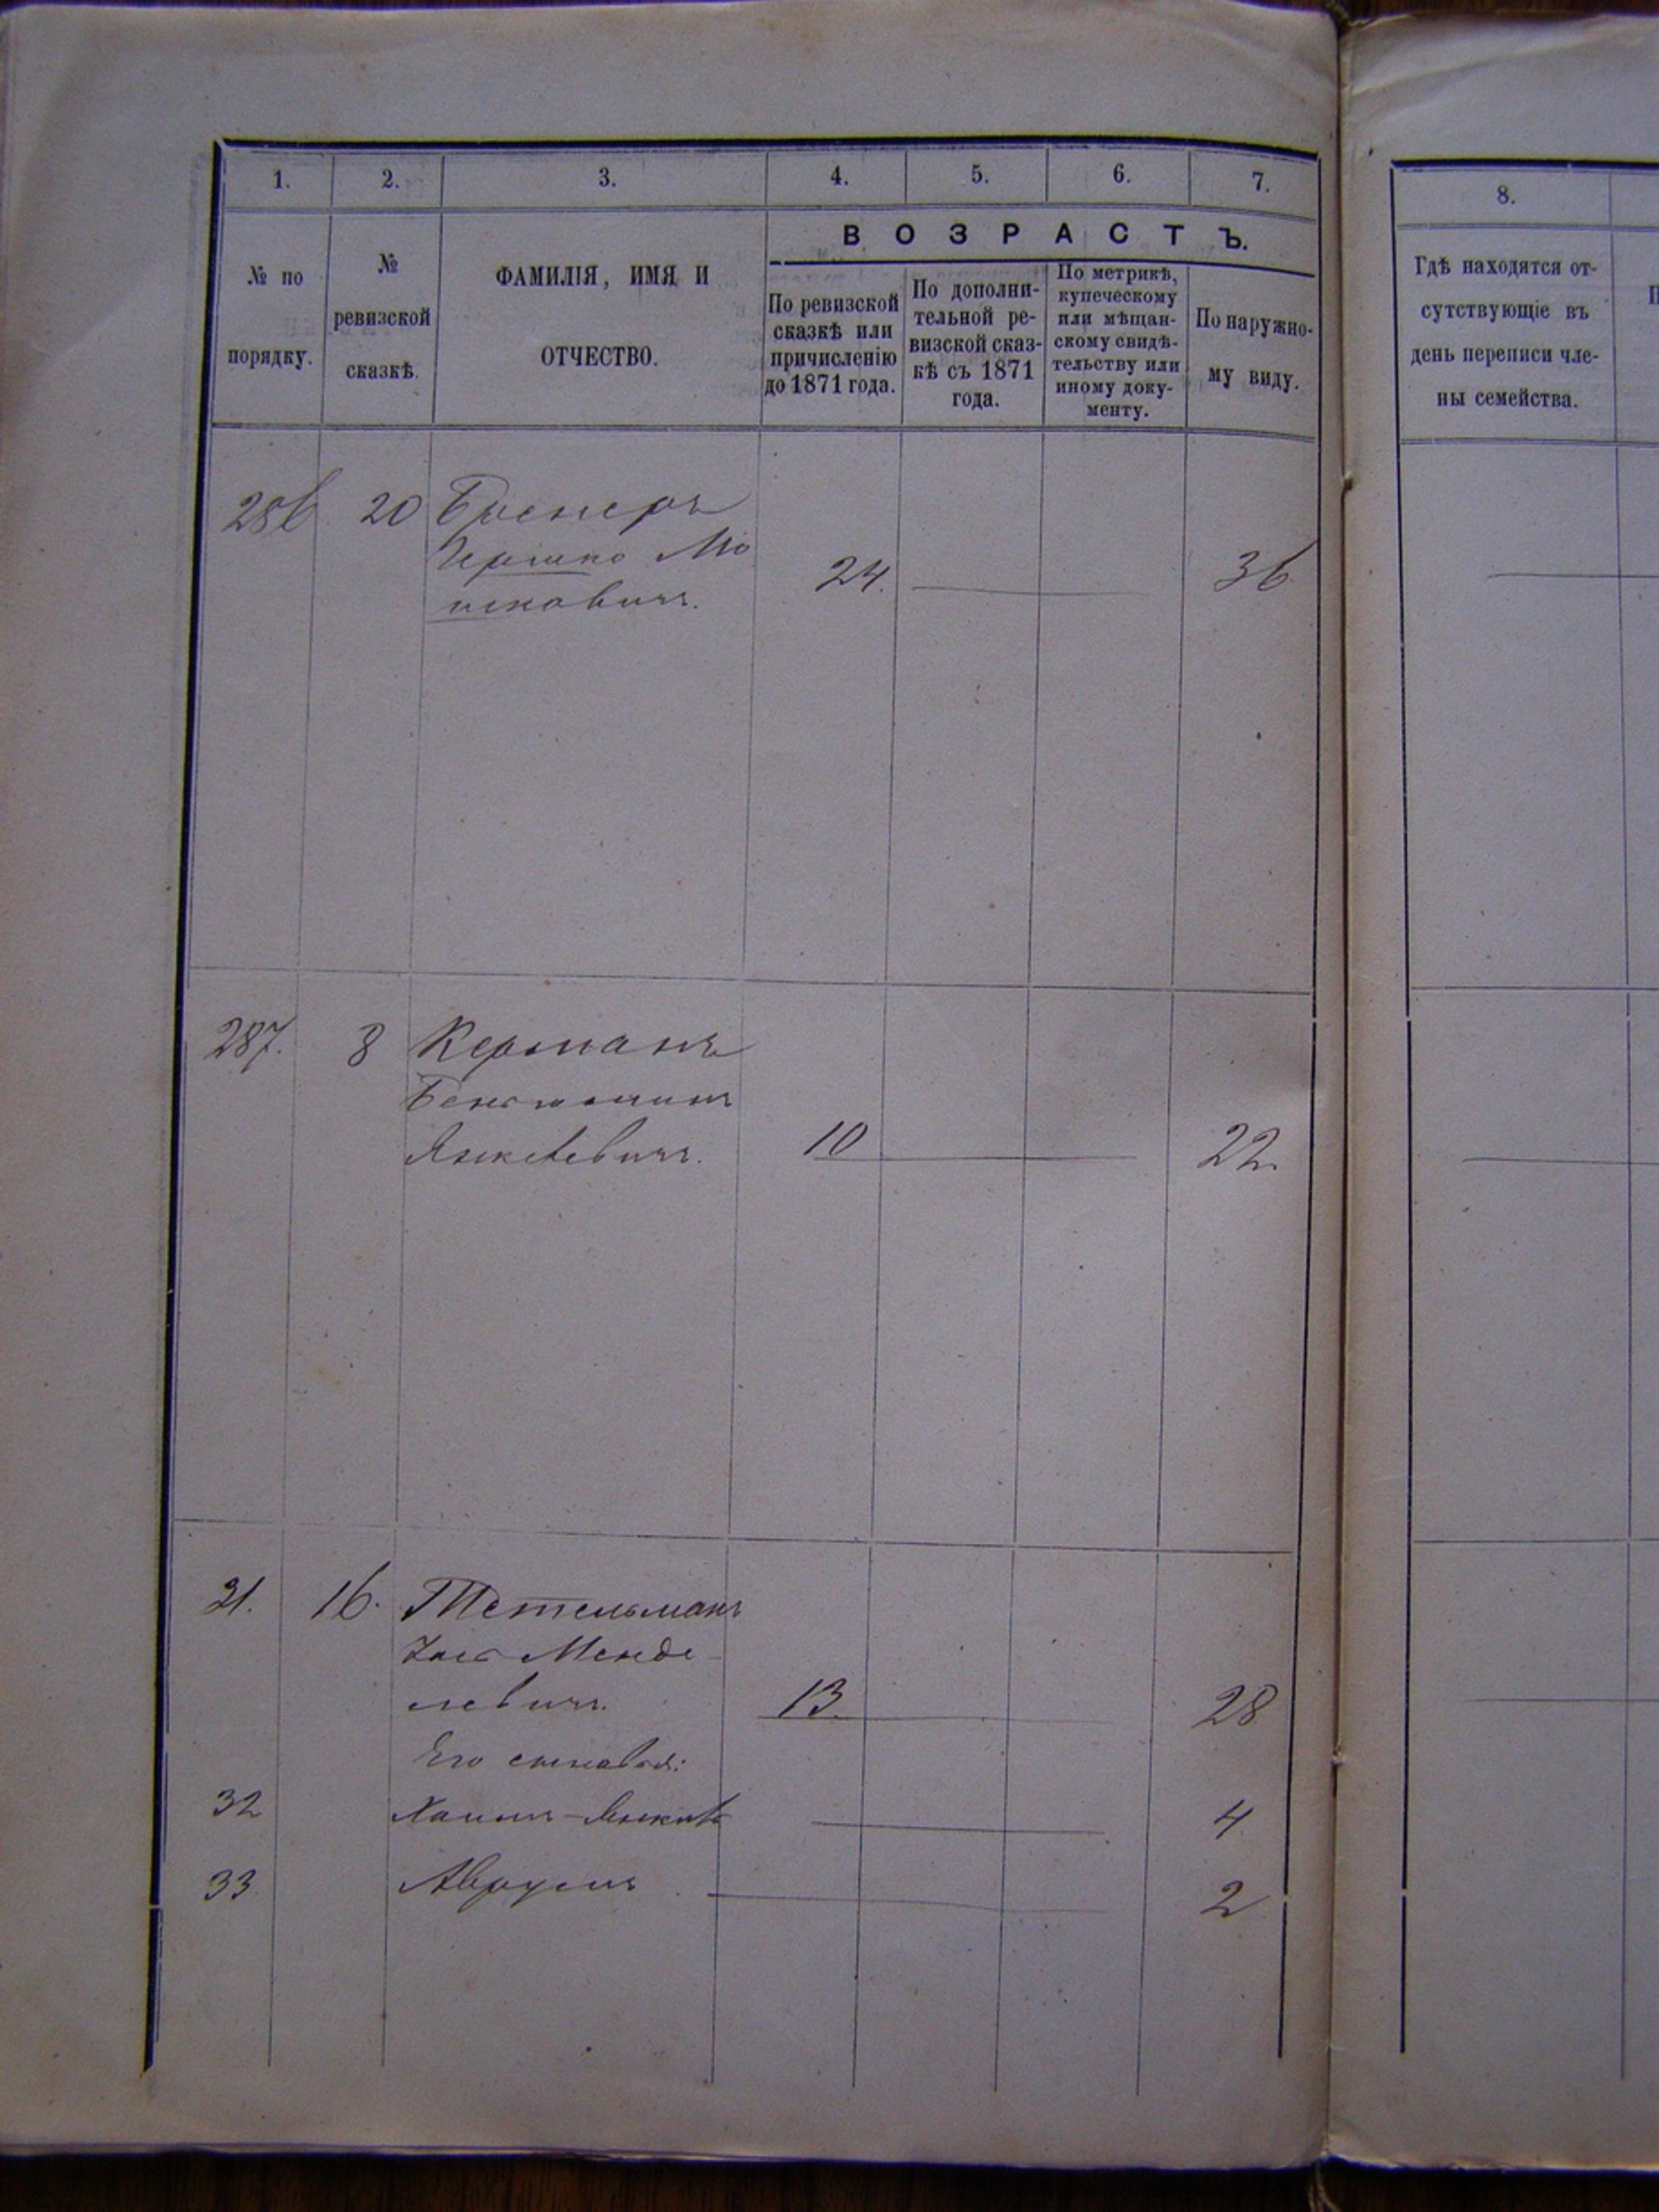 1. 2. 3. 4. 5. 6. 7.
№ по
порядку.
№
ревизской
сказкѣ.
ФАМИЛІЯ, ИМЯ И
ОТЧЕСТВО.
ВОЗРАСТЪ.
По ревизской
сказкѣ или
причисленію
до 1871 года.
По дополни-
тельной ре-
визской сказ-
кѣ съ 1871
года.
По метрикѣ,
купеческому
или мѣщан-
скому свидѣ-
тельству или
иному доку-
менту.
По наружно-
му виду.
286 20 Бренеръ
Гершко Мо
шковичъ. 24. 36
287. 8 Керманъ
Беньюминъ
Янкелевичъ. 10 22
31. 16. Тетельманъ
Менде
левичъ. 13. 28
Его сыновья:
32 Хаимъ-Янкель 4
33 Аврумъ 2
8.
Гдѣ находятся от-
сутствующіе въ
день переписи чле-
ны семейства.